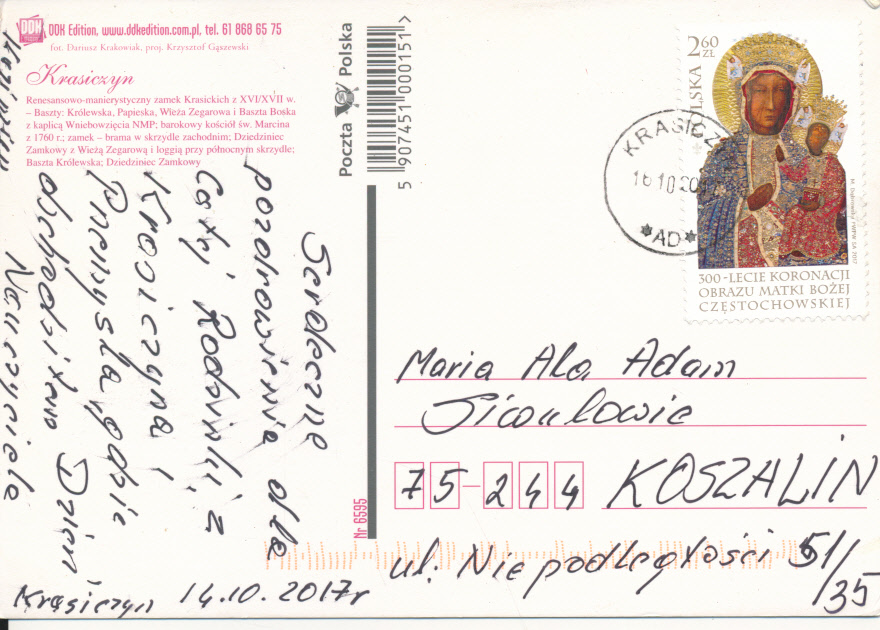 DDK Edition, www.ddkedition.com.pl, tel. 61 868 65 75
fot. Dariusz Krakowiak, proj. Krzysztof Gąszewski
Krasiczyn
Renesansowo-manierystyczny zamek Krasickich z XVI/XVII w.
– Baszty: Królewska, Papieska, Wieża Zegarowa i Baszta Boska
z kaplicą Wniebowzięcia NMP; barokowy kościół św. Marcina
z 1760 r.; zamek – brama w skrzydle zachodnim; Dziedziniec
Zamkowy z Wieżą Zegarową i loggią przy północnym skrzydle;
Baszta Królewska; Dziedziniec Zamkowy
Serdeczne
pozdrowienia dla
Całej Rodzinki z
Krasiczyna i
Przemyśla, gdzie
obchodziłam Dzień
Nauczyciela
Krasiczyn 14.10.2017r
Poczta Polska
5 907451 000151 >
Nr 6595
2,60
ZŁ
POLSKA
300-LECIE KORONACJI
OBRAZU MATKI BOŻEJ
CZĘSTOCHOWSKIEJ
KRASICZ
16 10 20
*AD*
Maria Ala Adam
75-244 KOSZALIN
ul. Niepodległości 51/
35